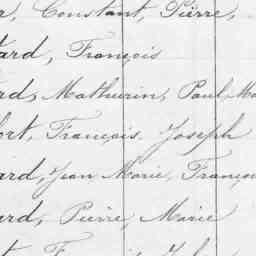 Constant, Pierre,
ard, François
rd, Mathurin, Paul, Ma
ort, François, Joseph
ard, Jean Marie, Françoi
ard, Pierre, Marie